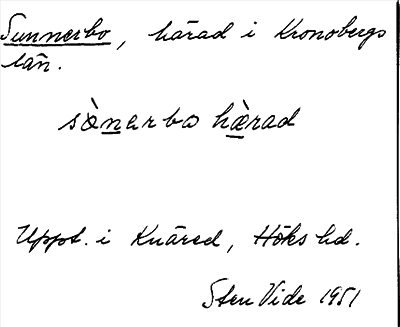 Sunnerbo, härad i Kronobergs
län.
sànerbo hàrad
Uppt. i Knäred, Höks hd.
Sten Vide 1951